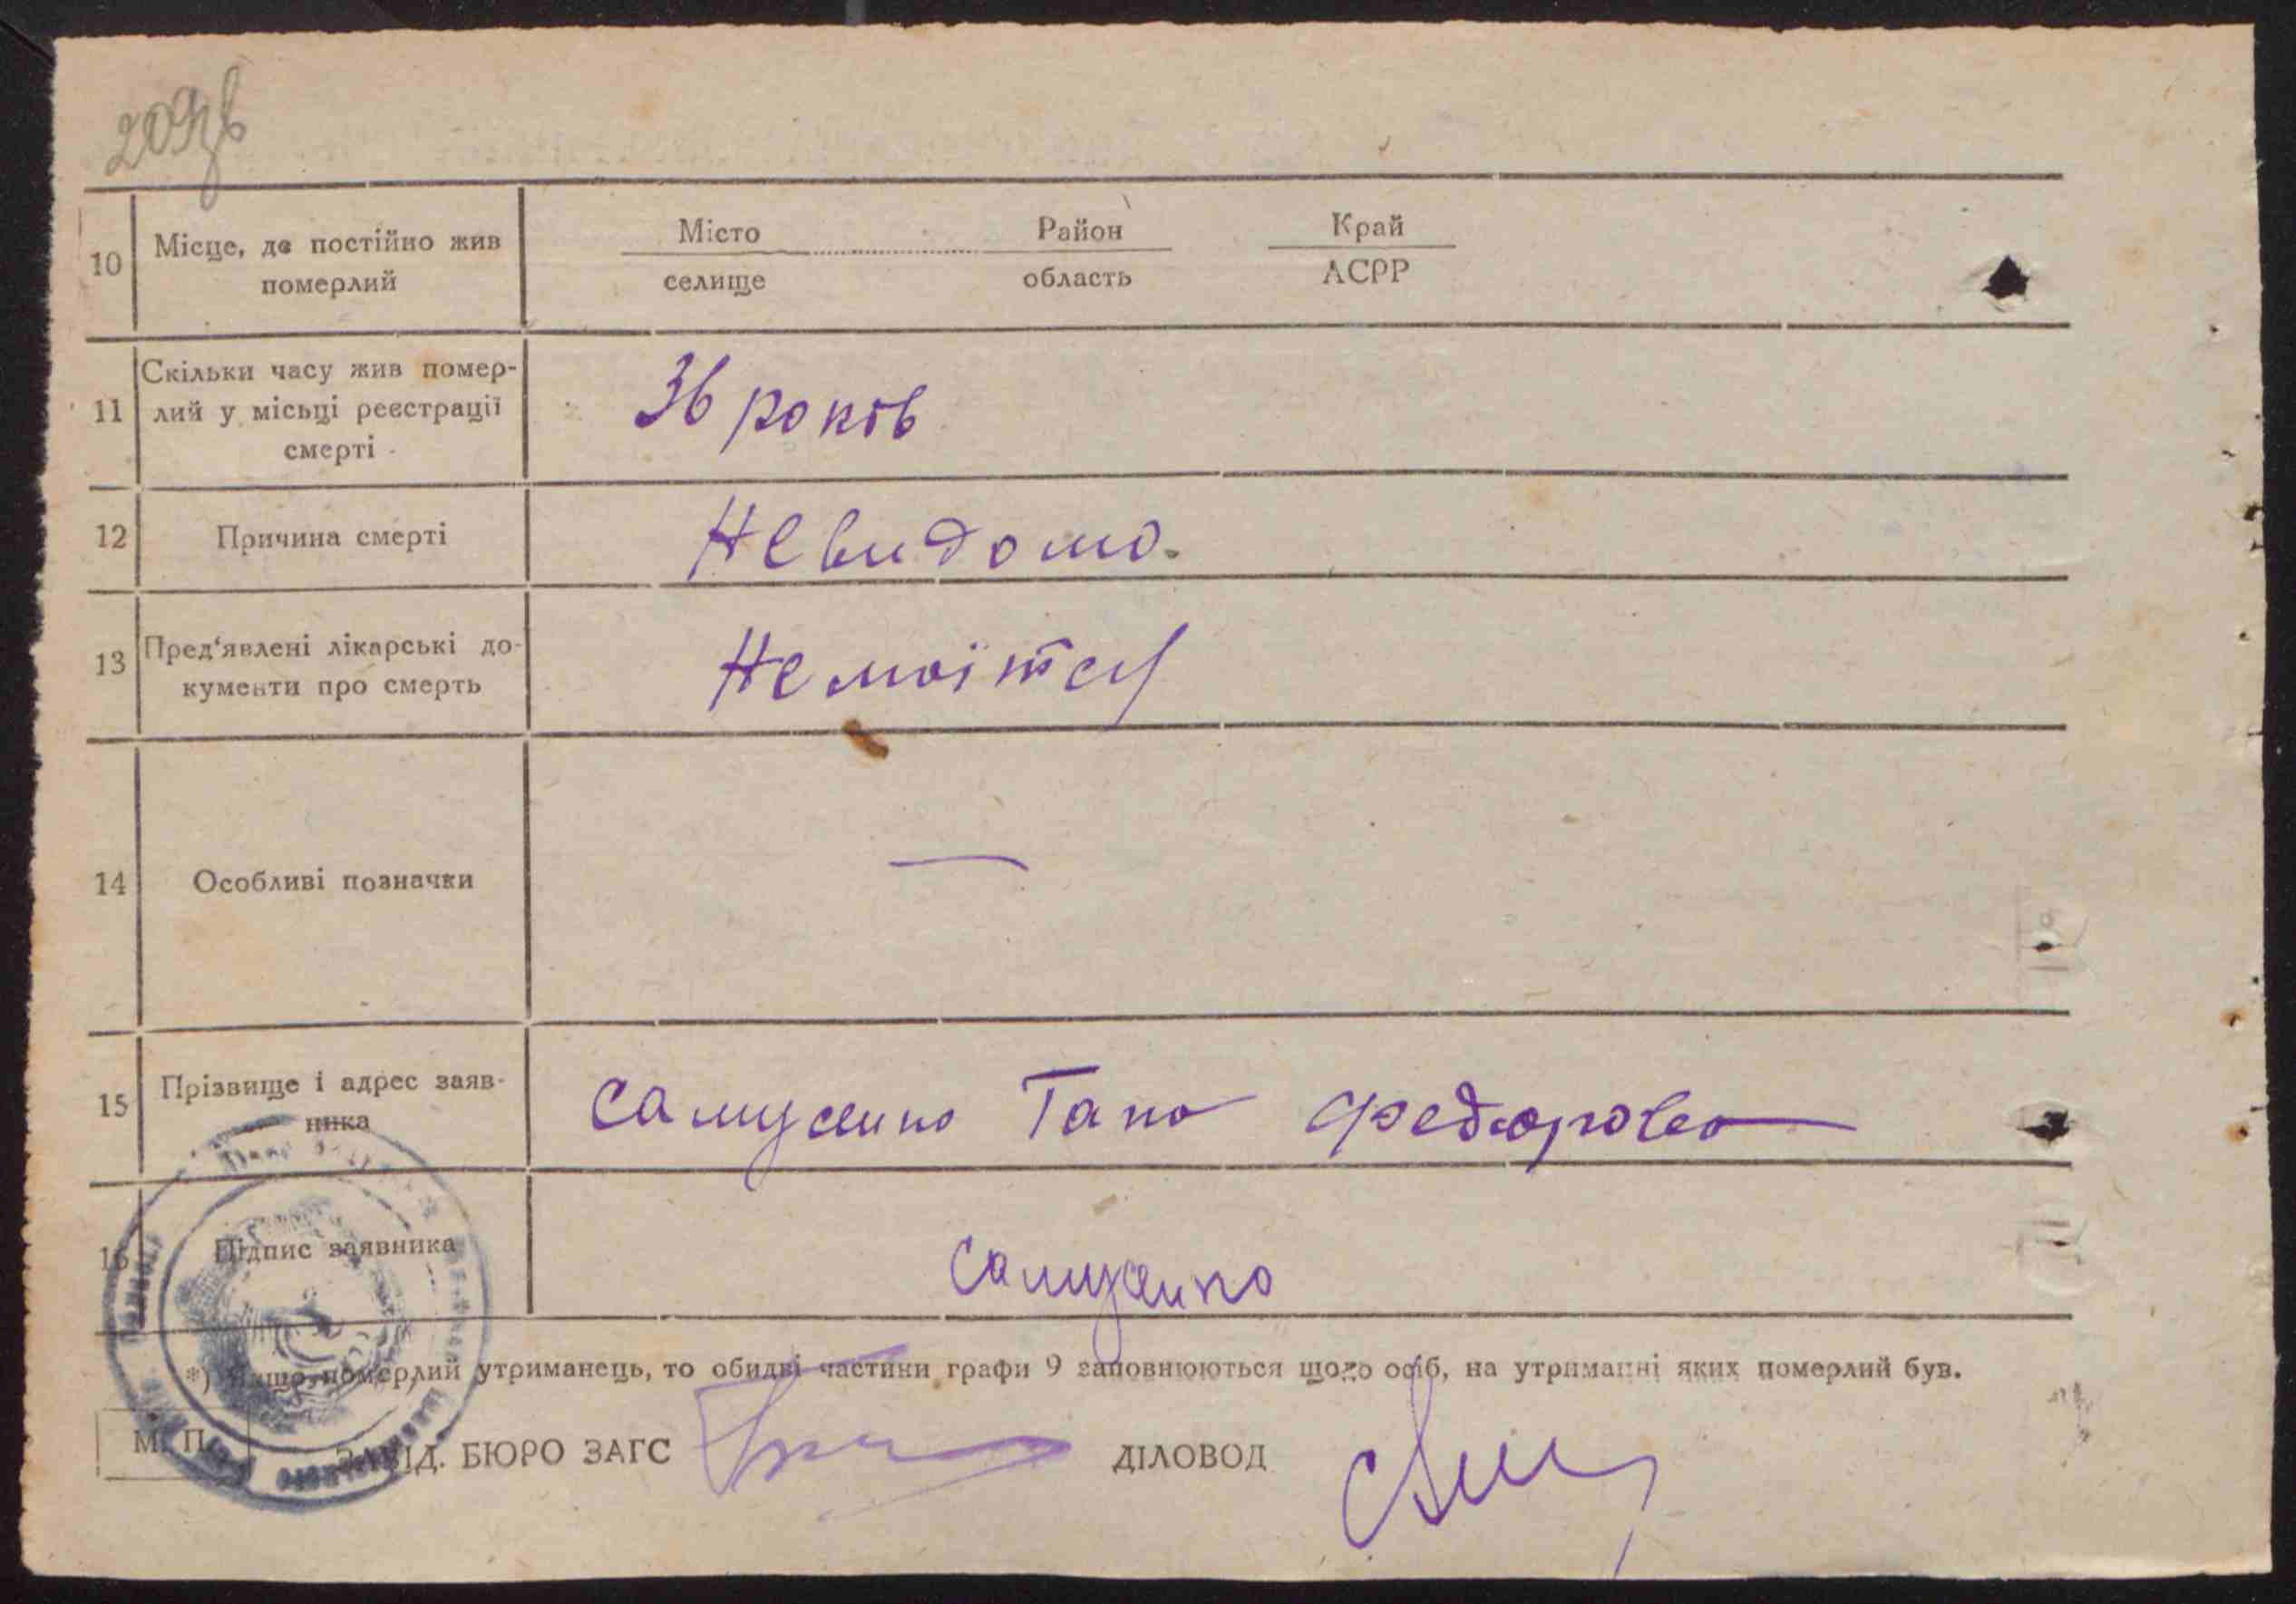 209зв
10 Місце, де постійно жив
померлий
Місто Район Край
селище область АСРР
11 Скільки часу жив помер-
лий у місьці реєстрації
смерті
36 років
12 Причина смерті Невидомо.
13 Пред'явлені лікарські до-
кументи про смерть
Немоїтся
14 Особливі позначки —
15 Прізвище і адрес заяв-
ника
Самусенко Гапа Федоровна
16 Підпис заявника Самусенко
*) Якщо померлий утриманець, то обидві частини графи 9 заповнюються щодо осіб, на утриманні яких померлий був.
М. П. ЗАВІД. БЮРО ЗАГС ДІЛОВОД